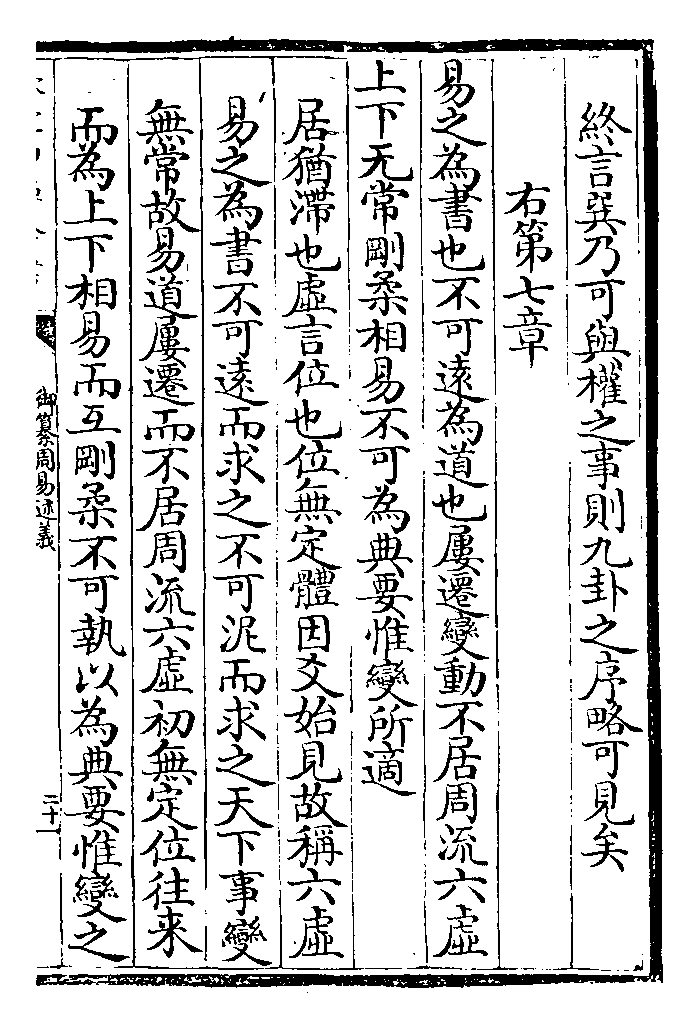 終言巽乃可與權之事則九卦之序略可見矣
右第七章
易之為書也不可遠為道也屢遷變動不居周流六虛
上下无常剛柔相易不可為典要惟變所適
居猶滯也虛言位也位無定體因爻始見故稱六虛
易之為書不可遠而求之不可泥而求之天下事變
無常故易道屢遷而不居周流六虛初無定位往来
而為上下相易而互剛柔不可執以為典要惟變之
御纂周易述義
二十一